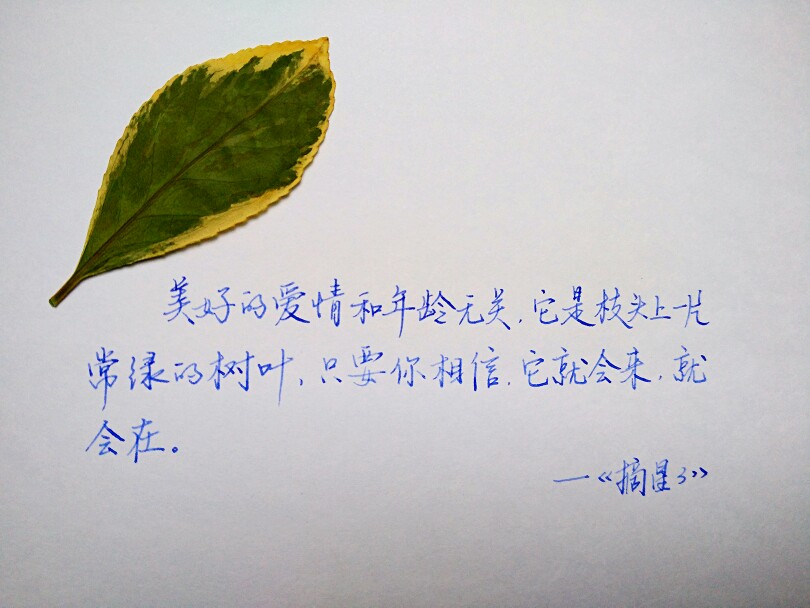 美好的爱情和年龄无关,它是枝头上一片
常绿的树叶,只要你相信,它就会来,就
会在。
—《摘星3》